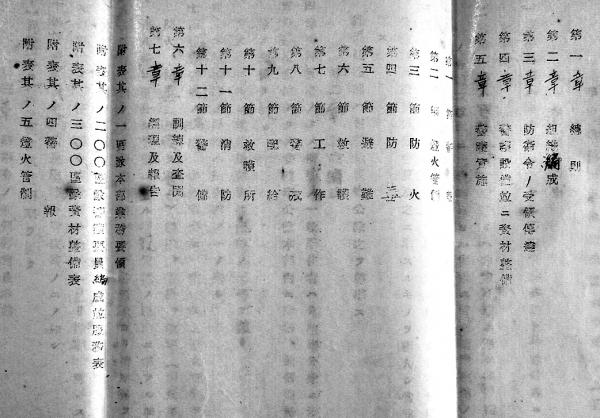 第一章 總則
第二章 組織編成
第三章 防衛令ノ受領傳達
第四章 警報設備竝ニ資材整備
第五章 警護實施
第一節 警報
第二節 燈火管制
第三節 防火
第四節 防毒
第五節 避難
第六節 救護
第七節 工作
第八節 警戒
第九節 配給
第十節 救護所
第十一節 消防
第十二節 警備
第六章 訓練及査閲
第七章 經理及報告
附表其ノ一 區隊本部業務要領
附表其ノ二 〇〇區隊
附表其ノ三 〇〇區隊資材整備表
附表其ノ四 警報
附表其ノ五 燈火管制